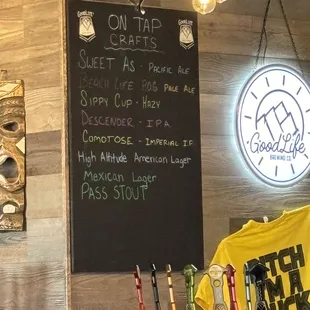 ON TAP
CRAFTS
SWEET AS - PACIFIC ALE
BEACH LIFE POG PALE ALE
SIPPY CUP - HAZY
DESCENDER - IPA
COMOTOSE - IMPERIAL I.P.
High Altitude American Lager
Mexican Lager
PASS STOUT
GoodLife
BREWING CO.
BITCH
I'M A